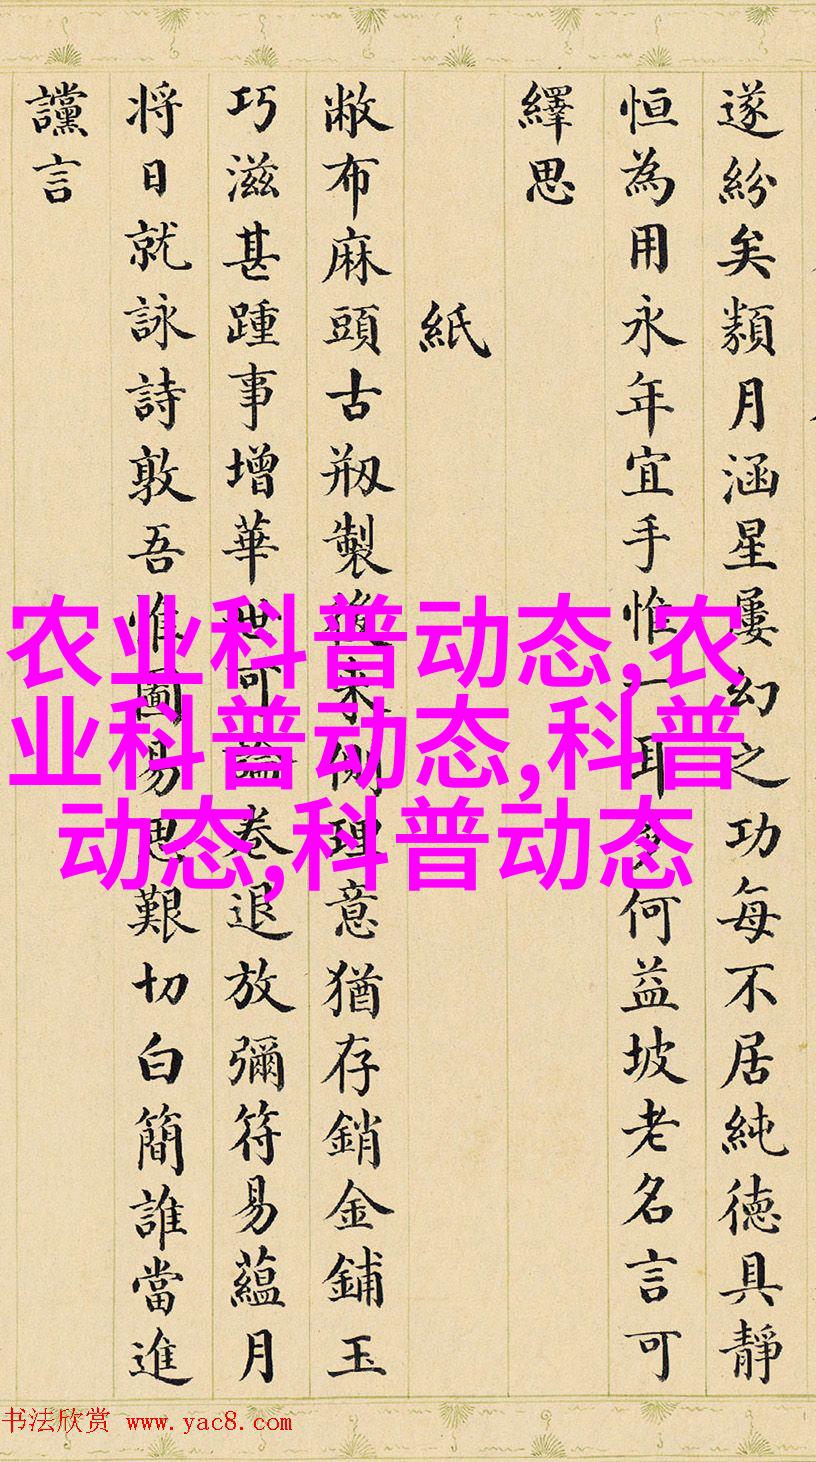 遂紛矣類月涵星屢幻之功每不居純德具靜
恒為用永年宜手惟一耳多何益坡老名言可
繹思
紙
敝布麻頭古剏製後來側理意猶存銷金鋪玉
巧滋甚踵事增華世可論卷退放彌符易蘊月
将日就詠詩敦吾惟圖易思艱切白簡誰當進
讜言
农业科普动态,农
业科普动态,科普
动态,科普动态
书法欣赏 www.yac8.com